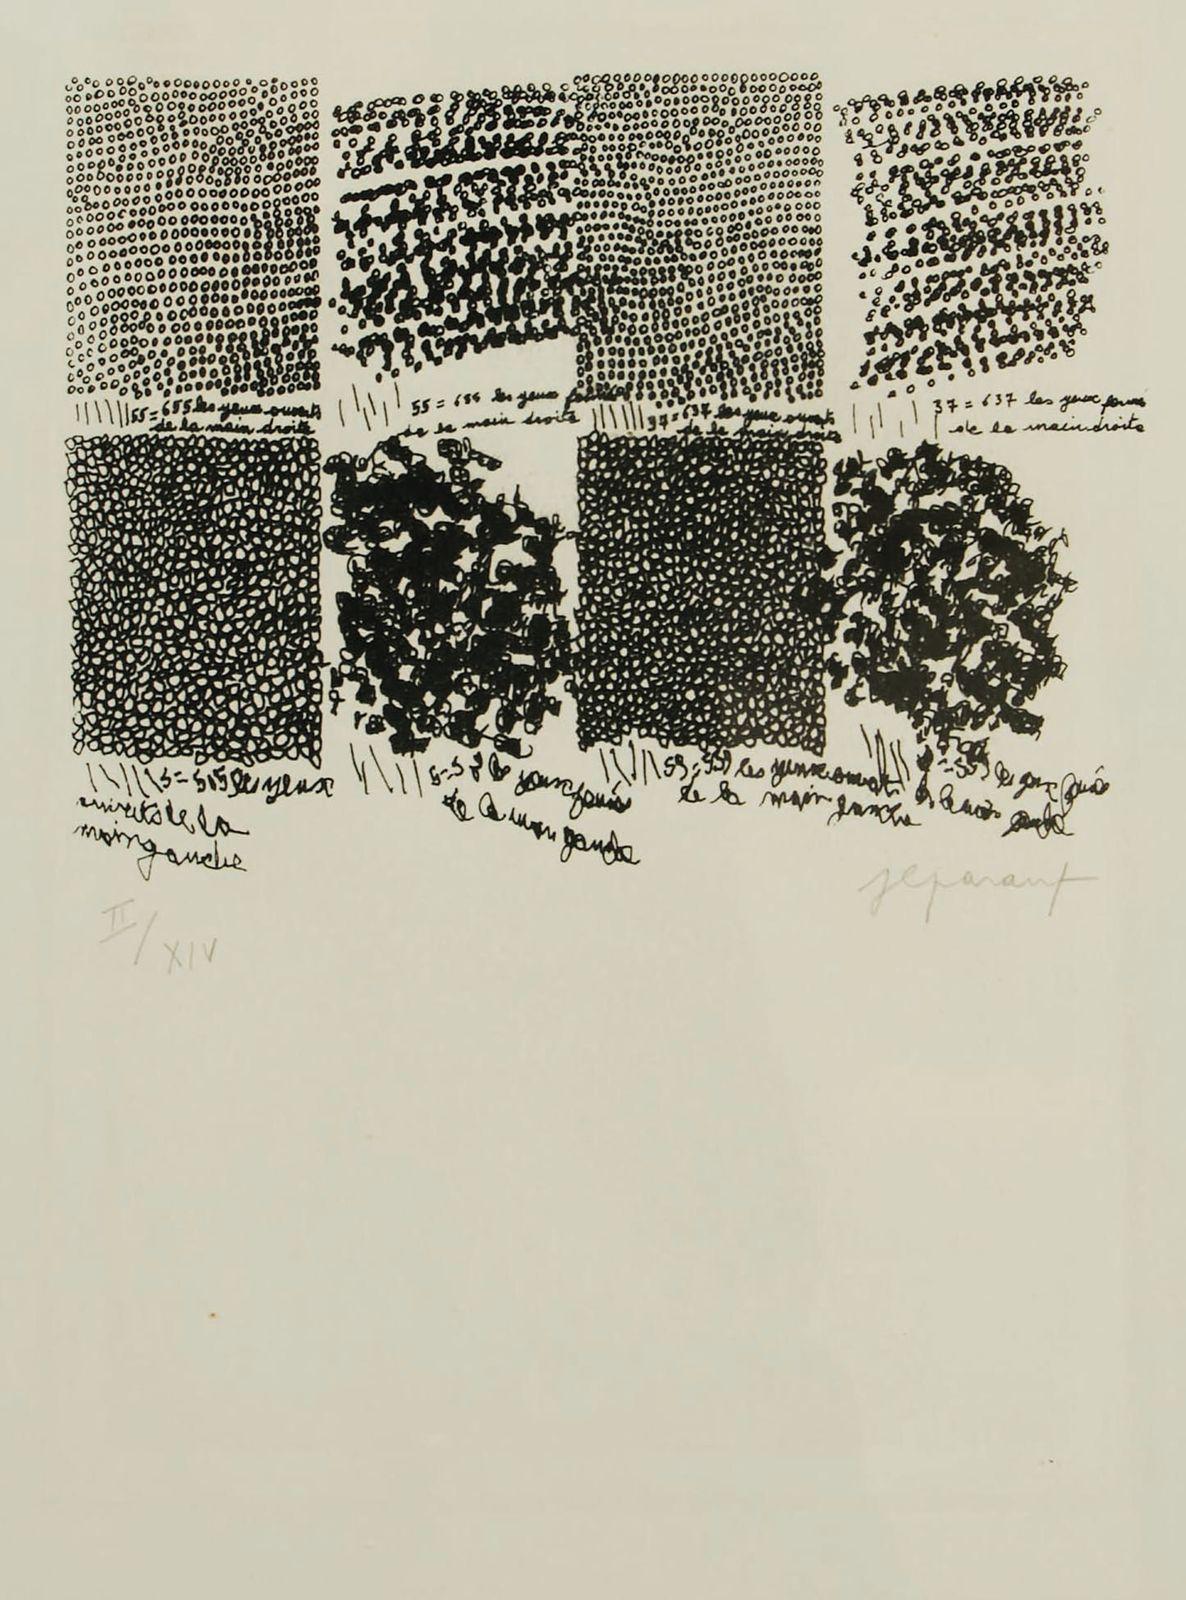 55 = 655 les yeux ouverts
de la main droite
55 = 655 les yeux fermés
de la main droite
37 = 637 les yeux ouverts
de la main droite
37 = 637 les yeux fermés
de la main droite
les yeux
ouverts de la
main gauche
les yeux fermés
de la main gauche
les yeux ouverts
de la main gauche
les yeux fermés
de la main gauche
II/XIV
jlparant